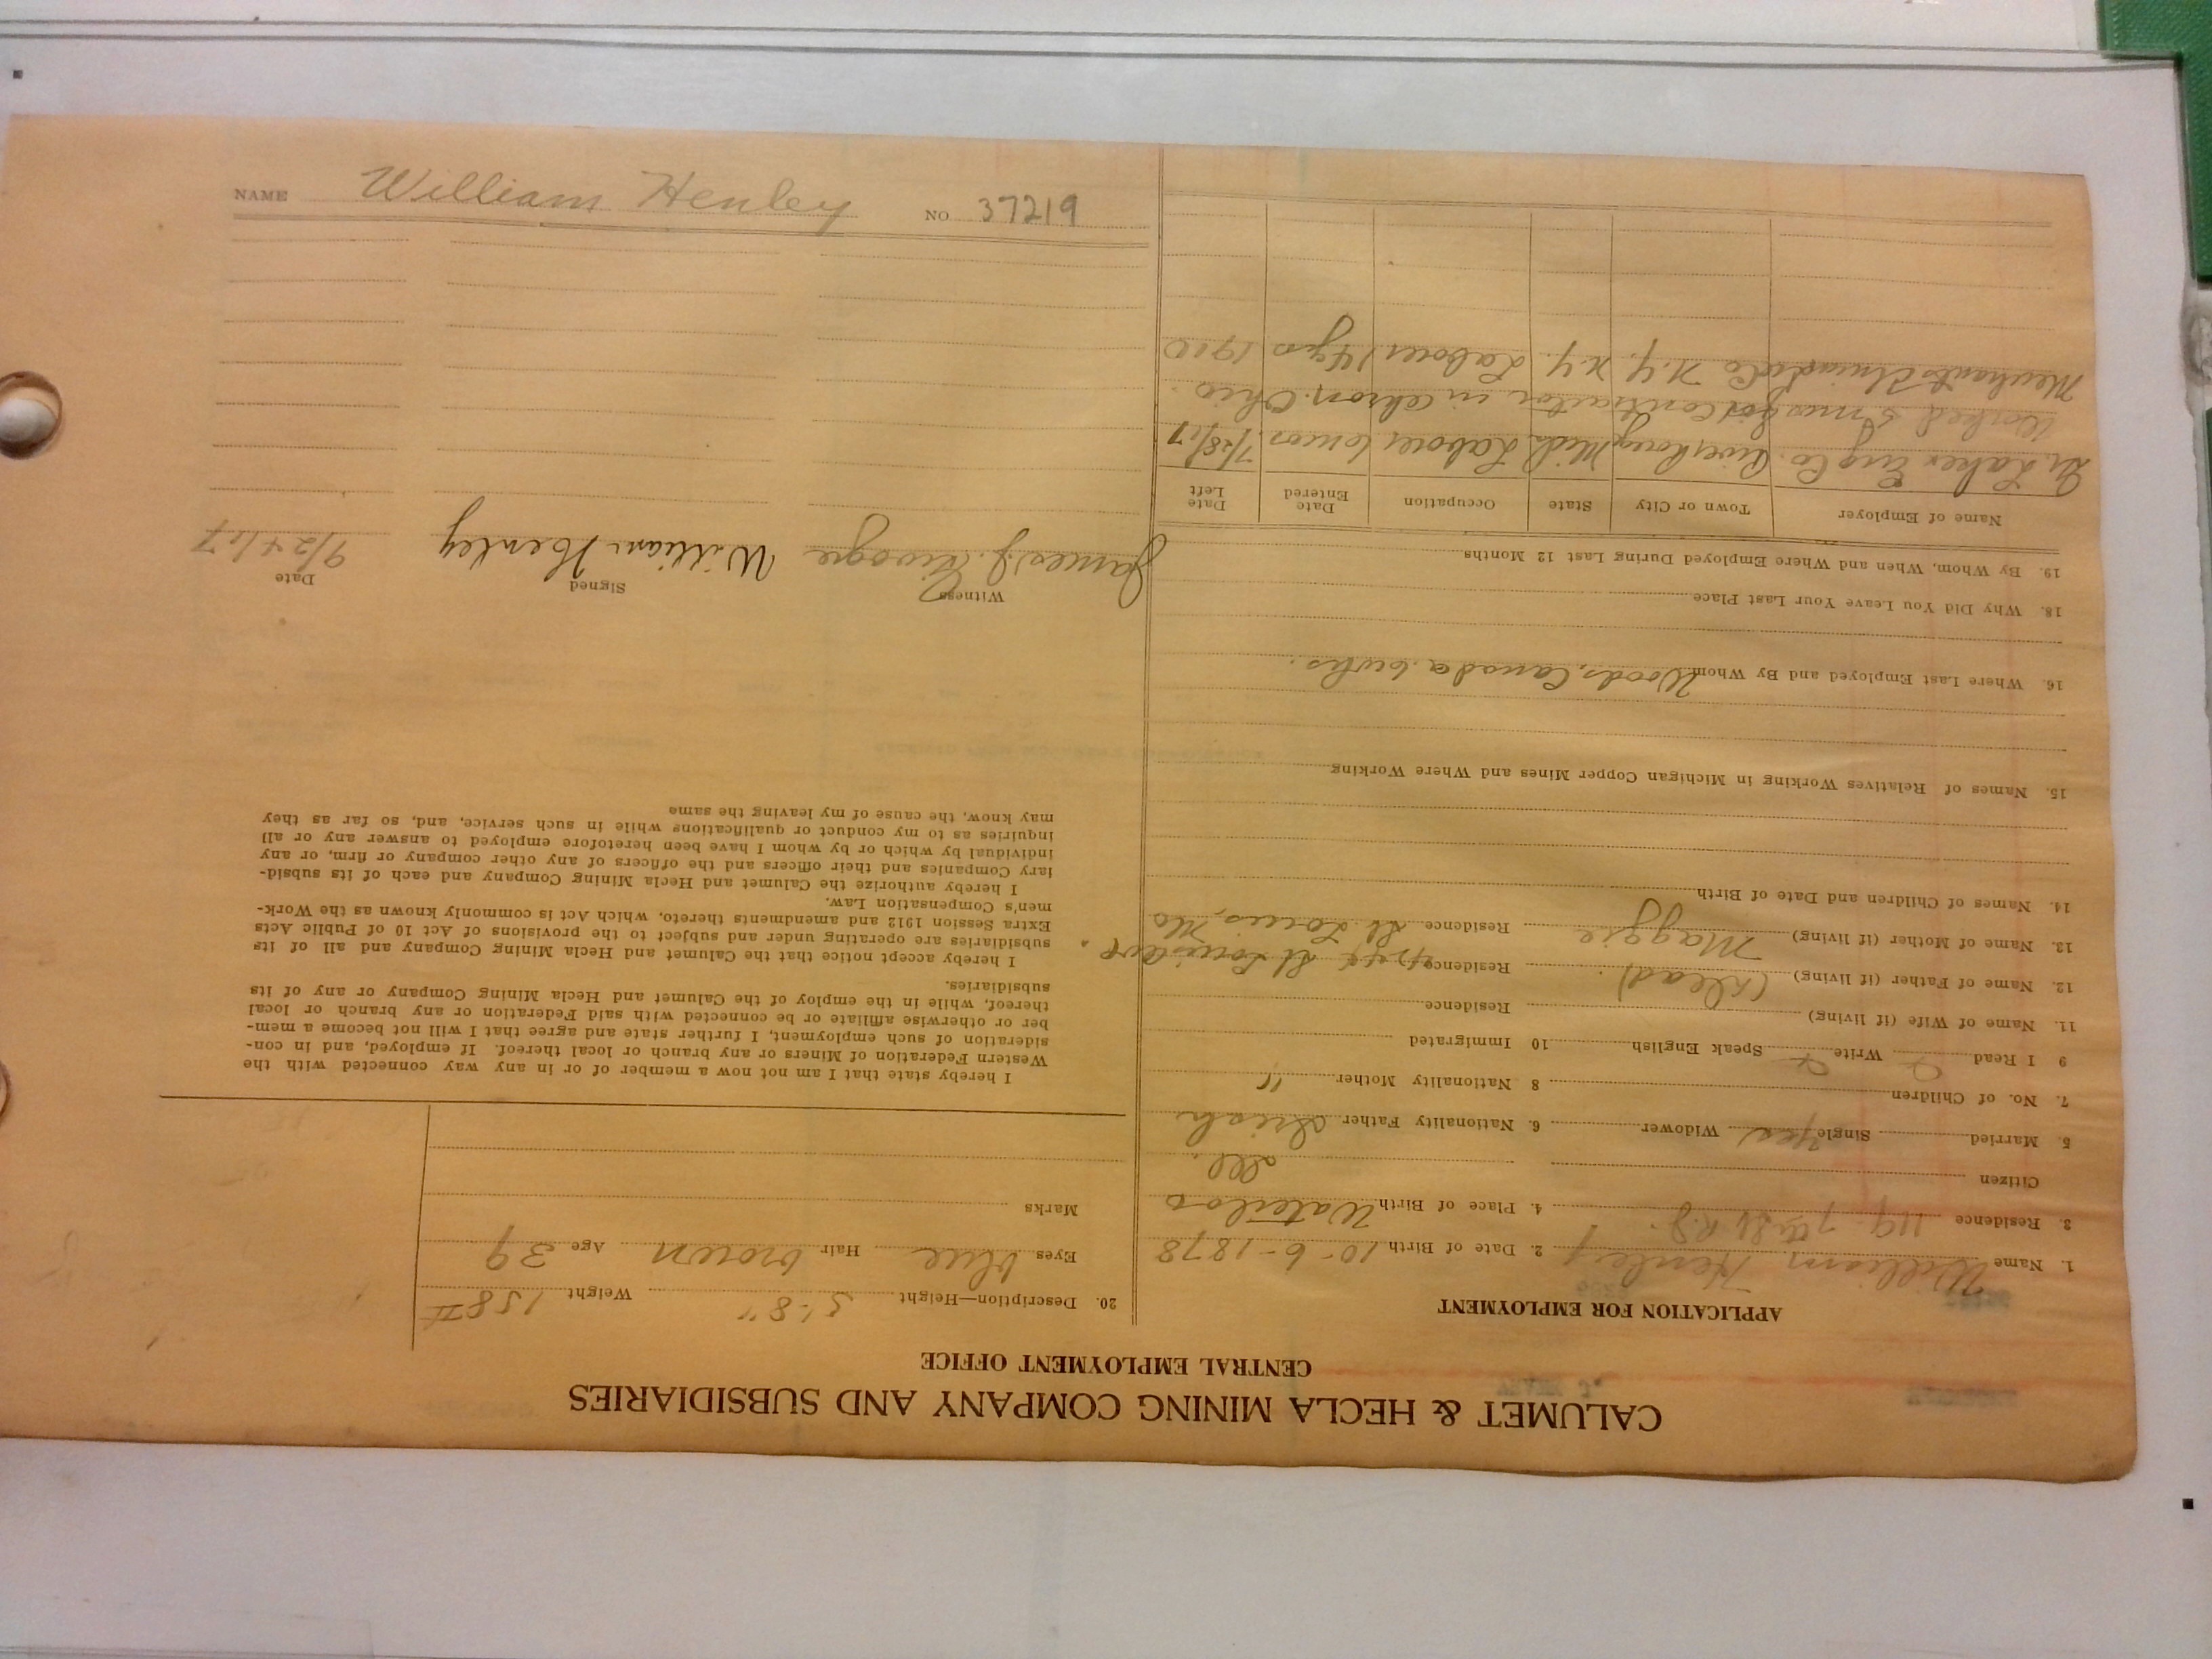 CALUMET & HECLA MINING COMPANY AND SUBSIDIARIES
CENTRAL EMPLOYMENT OFFICE
APPLICATION FOR EMPLOYMENT
1. Name William Henley 2. Date of Birth 10-6-1878
3. Residence 119-7th St. 4. Place of Birth Waterloo
Citizen Ill.
5 Married Single yes Widower 6. Nationality Father Irish
7. No. of Children 8 Nationality Mother "
9 I Read Write Speak English 10 Immigrated
11. Name of Wife (if living) Residence
12. Name of Father (if living) (dead). Residence St Louis Ave
13. Name of Mother (if living) Maggie Residence St. Louis, Mo
14. Names of Children and Date of Birth
15. Names of Relatives Working in Michigan Copper Mines and Where Working
16. Where Last Employed and By Whom Woods, Canada
18. Why Did You Leave Your Last Place
19. By Whom, When and Where Employed During Last 12 Months
Name of Employer Town or City State Occupation Date Entered Date Left
Gr. Lakes Eng Co. River Rouge Mich. Laborer 6 mos. 7/28/17
Worked mos for Contractor in Akron, Ohio.
Merchants N.Y. N.Y. Laborer 14 yrs 1910
20. Description—Height 5'-8" Weight 158 #
Eyes blue Hair brown Age 39
Marks
I hereby state that I am not now a member of or in any way connected with the
Western Federation of Miners or any branch or local thereof. If employed, and in con-
sideration of such employment, I further state and agree that I will not become a mem-
ber or otherwise affiliate or be connected with said Federation or any branch or local
thereof, while in the employ of the Calumet and Hecla Mining Company or any of its
subsidiaries.
I hereby accept notice that the Calumet and Hecla Mining Company and all of its
subsidiaries are operating under and subject to the provisions of Act 10 of Public Acts
Extra Session 1912 and amendments thereto, which Act is commonly known as the Work-
men's Compensation Law.
I hereby authorize the Calumet and Hecla Mining Company and each of its subsid-
iary Companies and their officers and the officers of any other company or firm, or any
individual by which or by whom I have been heretofore employed to answer any or all
inquiries as to my conduct or qualifications while in such service, and, so far as they
may know, the cause of my leaving the same
Witness Signed Date
James J. William Henley 9/24/17
NAME William Henley NO 37219